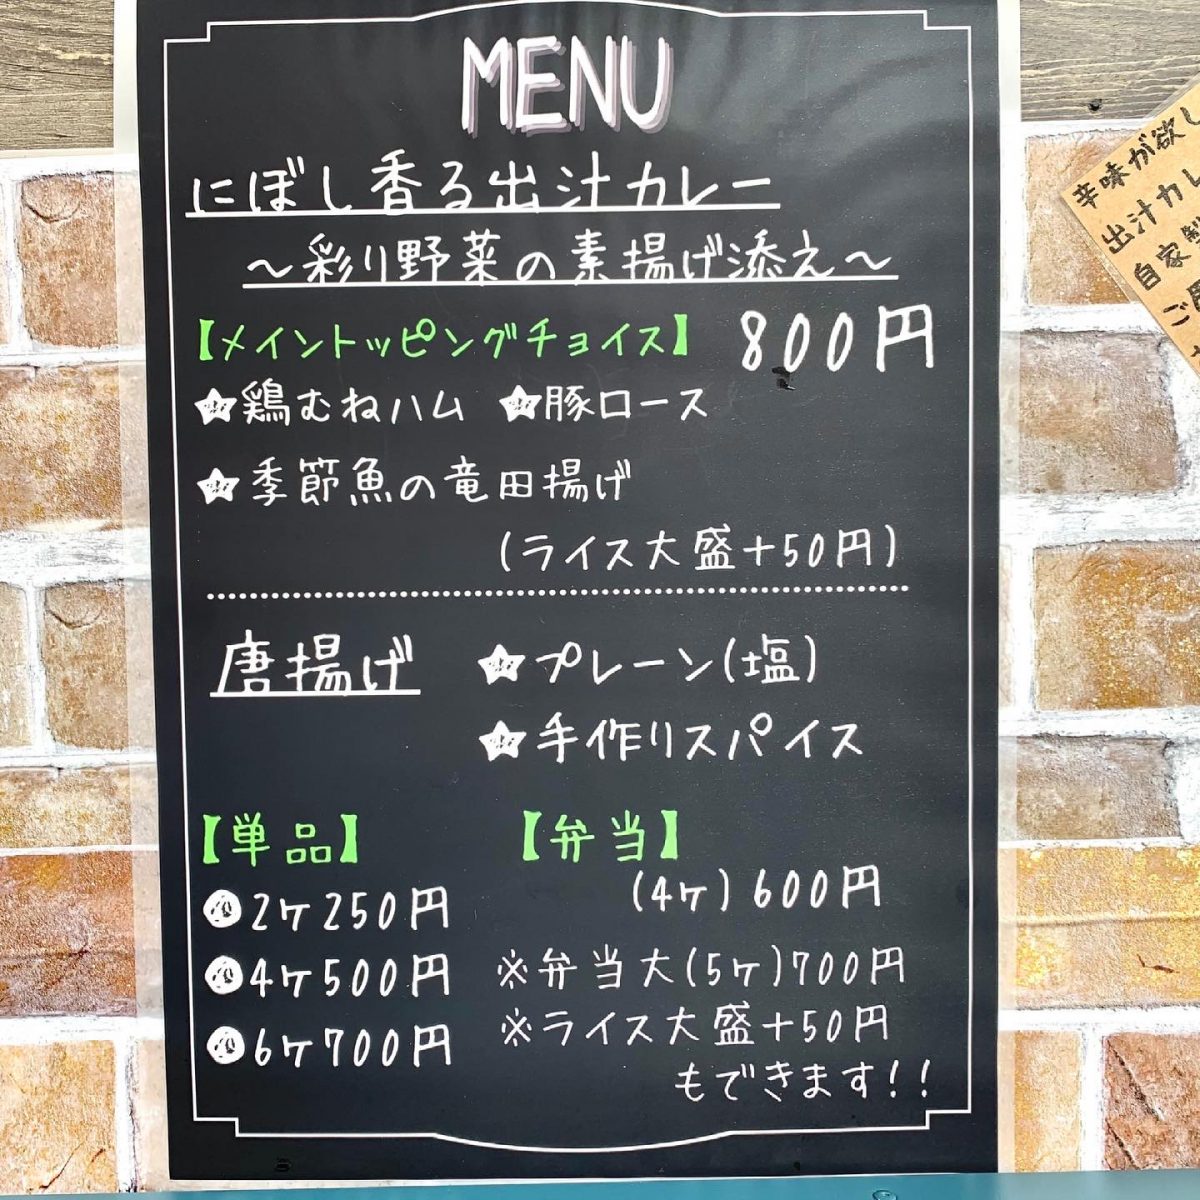 MENU
にぼし香る出汁カレー
～彩り野菜の素揚げ添え～
【メイントッピングチョイス】 800円
★鶏むねハム ★豚ロース
★季節魚の竜田揚げ
(ライス大盛+50円)
唐揚げ ★プレーン(塩)
★手作りスパイス
【単品】
●2ヶ250円
●4ヶ500円
●6ヶ700円
【弁当】
(4ヶ)600円
※弁当大(5ヶ)700円
※ライス大盛+50円
もできます!!
辛味が欲し
出汁カレ
自家
ご